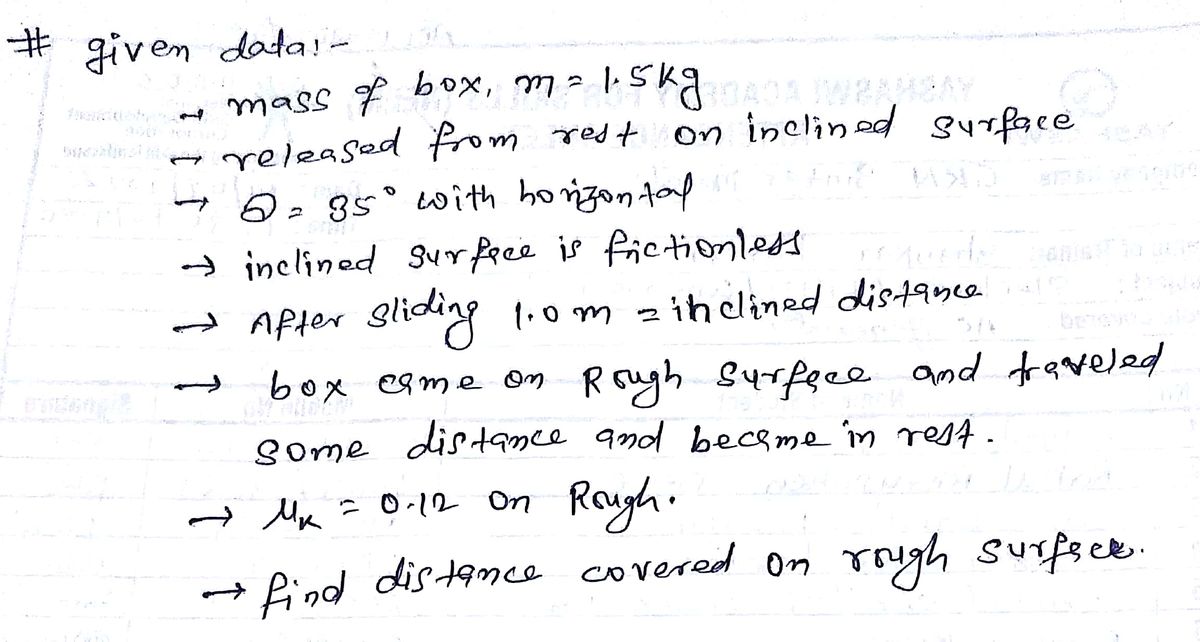 # given data:-
→ mass of box, m = 1.5 kg
→ released from rest on inclined surface
→ θ = 35° with horizontal
→ inclined surface is frictionless
→ After sliding 1.0 m = inclined distance
→ box came on Rough surface and traveled
some distance and became in rest.
→ μK = 0.12 on Rough.
→ find distance covered on rough surface.